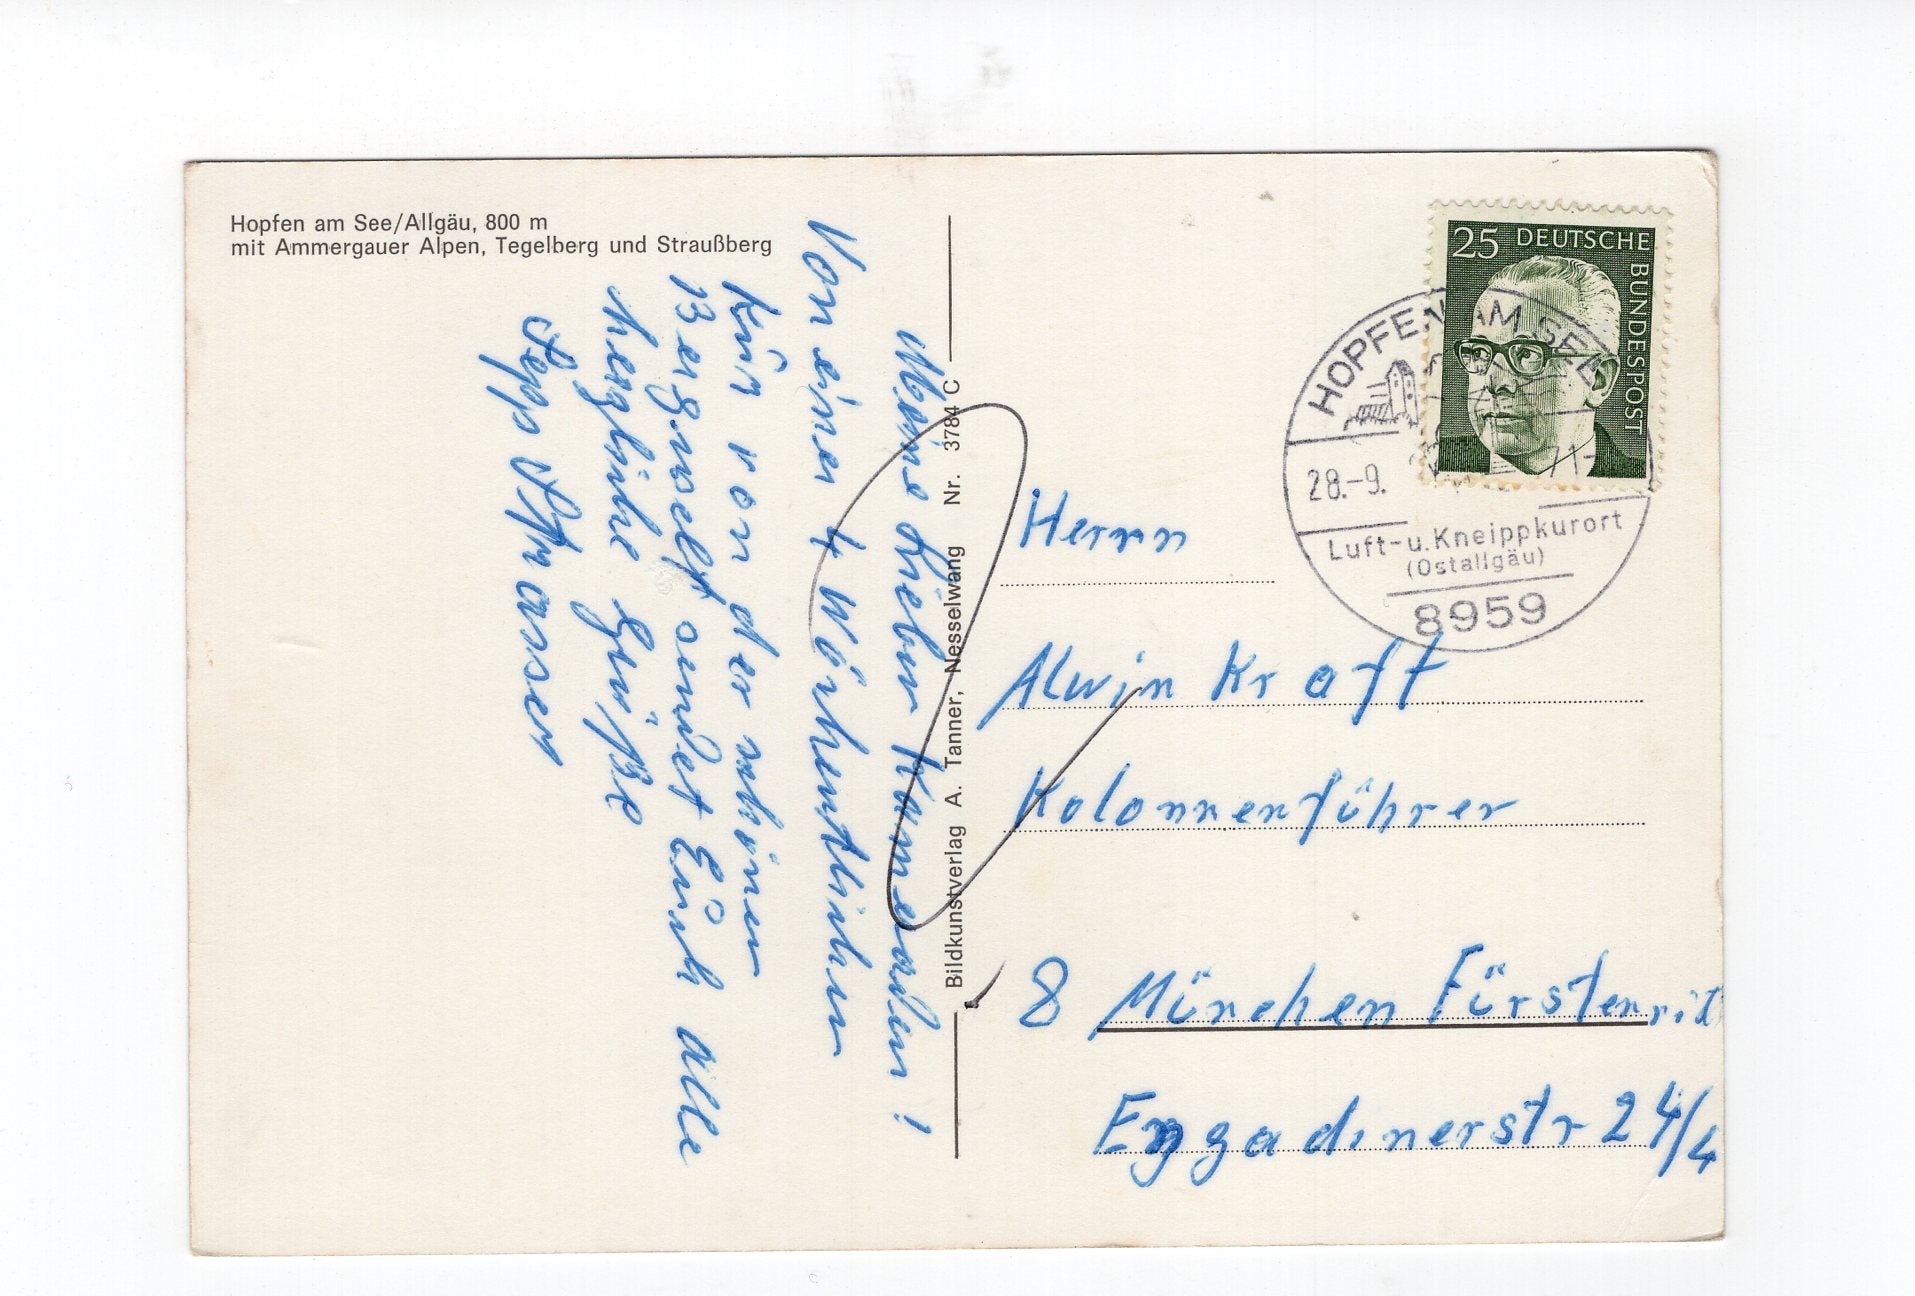 Hopfen am See/Allgäu, 800 m
mit Ammergauer Alpen, Tegelberg und Straußberg
Meine Lieben Kameraden!
Von einer 4 Wöchentlichen
Kur von der schönen
Bergwelt sendet Euch alle
herzliche Grüße
Sepp Strasser
Bildkunstverlag A. Tanner, Nesselwang Nr. 3784 C
25 DEUTSCHE BUNDESPOST
HOPFEN AM SEE
28.-9. 71-
Luft-u.Kneippkurort
(Ostallgäu)
8959
Herrn
Alwin Kraft
Kolonnenführer
8 München Fürstenrit
Engadinerstr 24/4